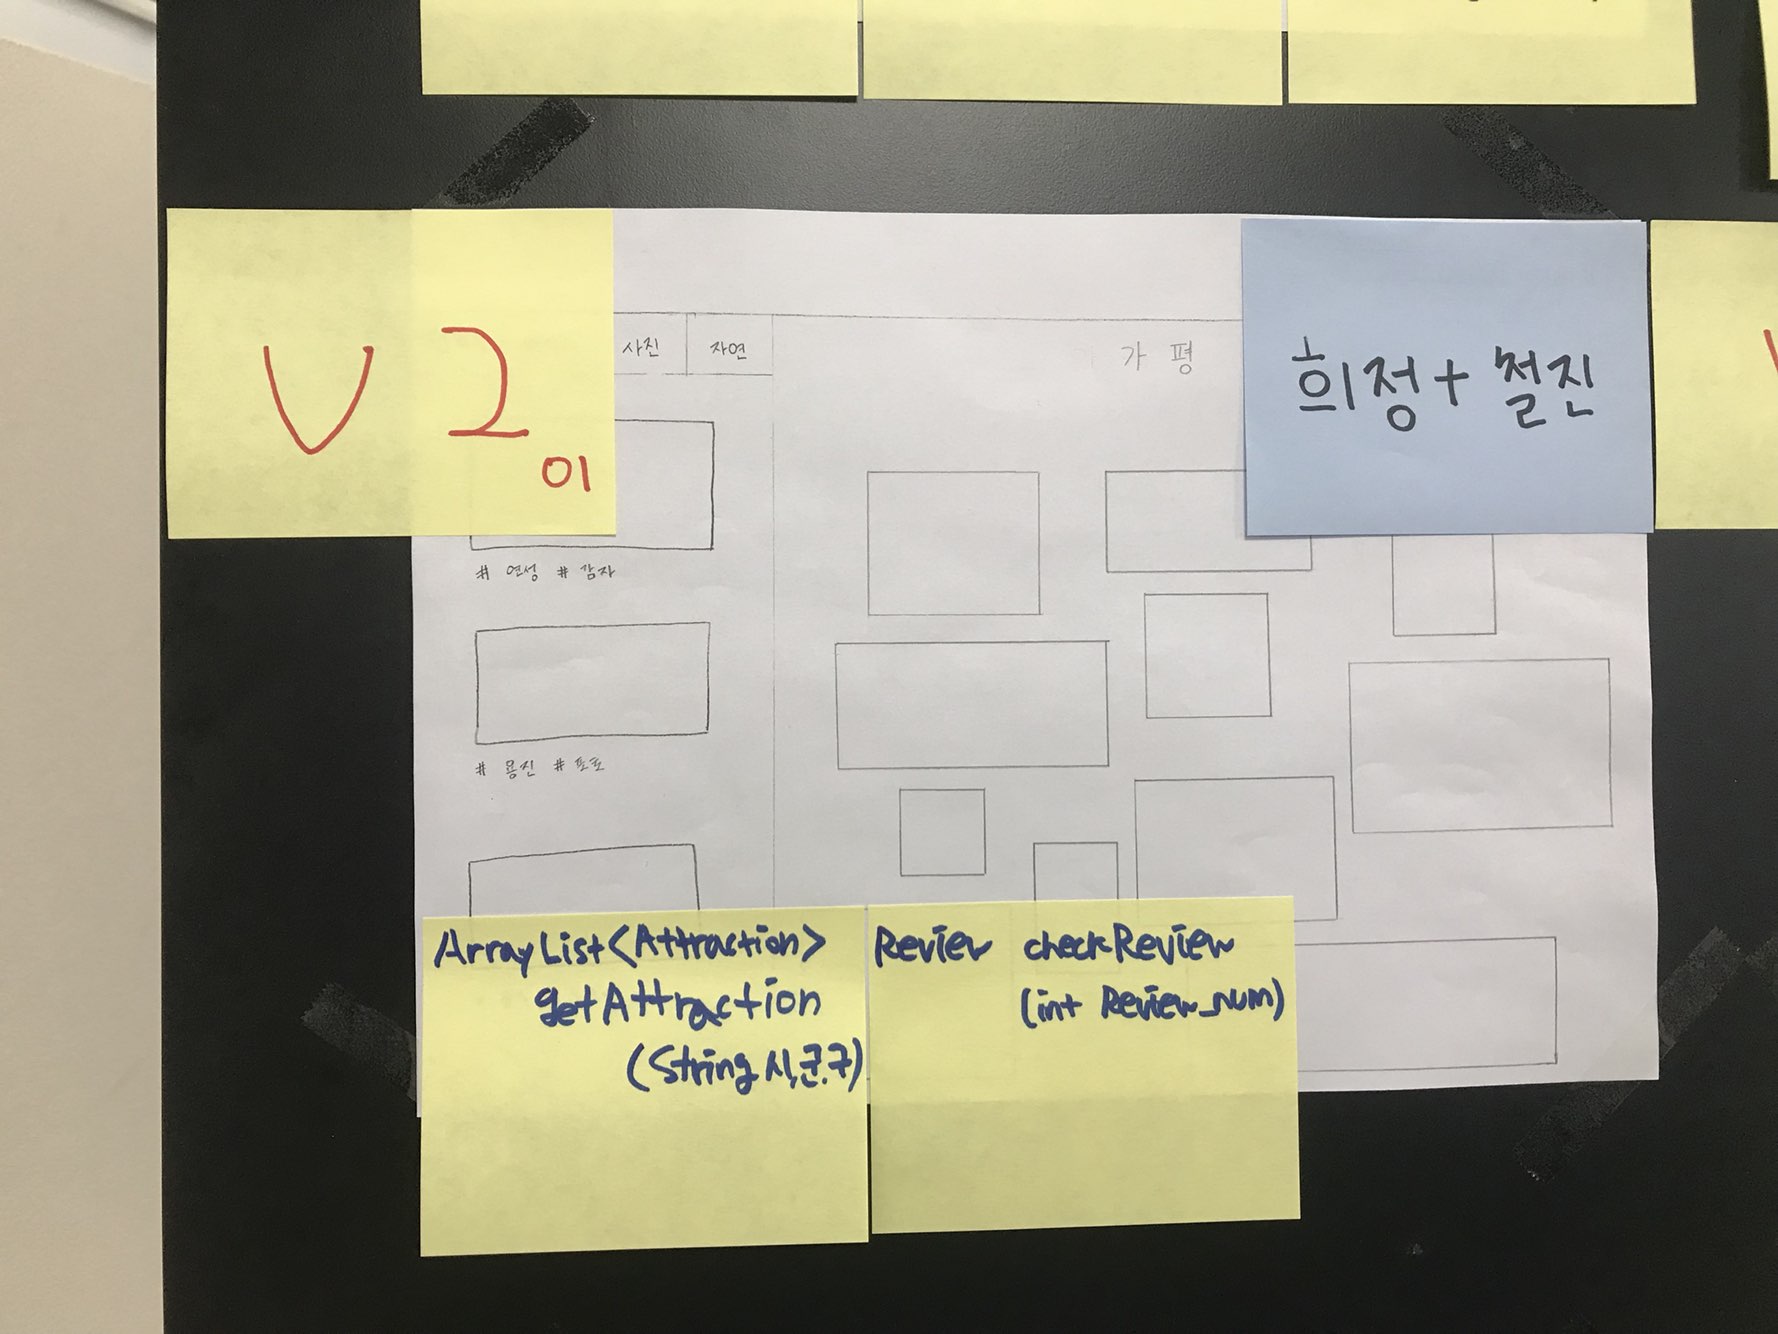 V 2
01
사진 자연
가평
희정+철진
# 연성 # 감자
# 용진 # 포토
ArrayList<Attraction>
getAttraction
(String 시,군.구)
Review checkReview
(int Review_num)